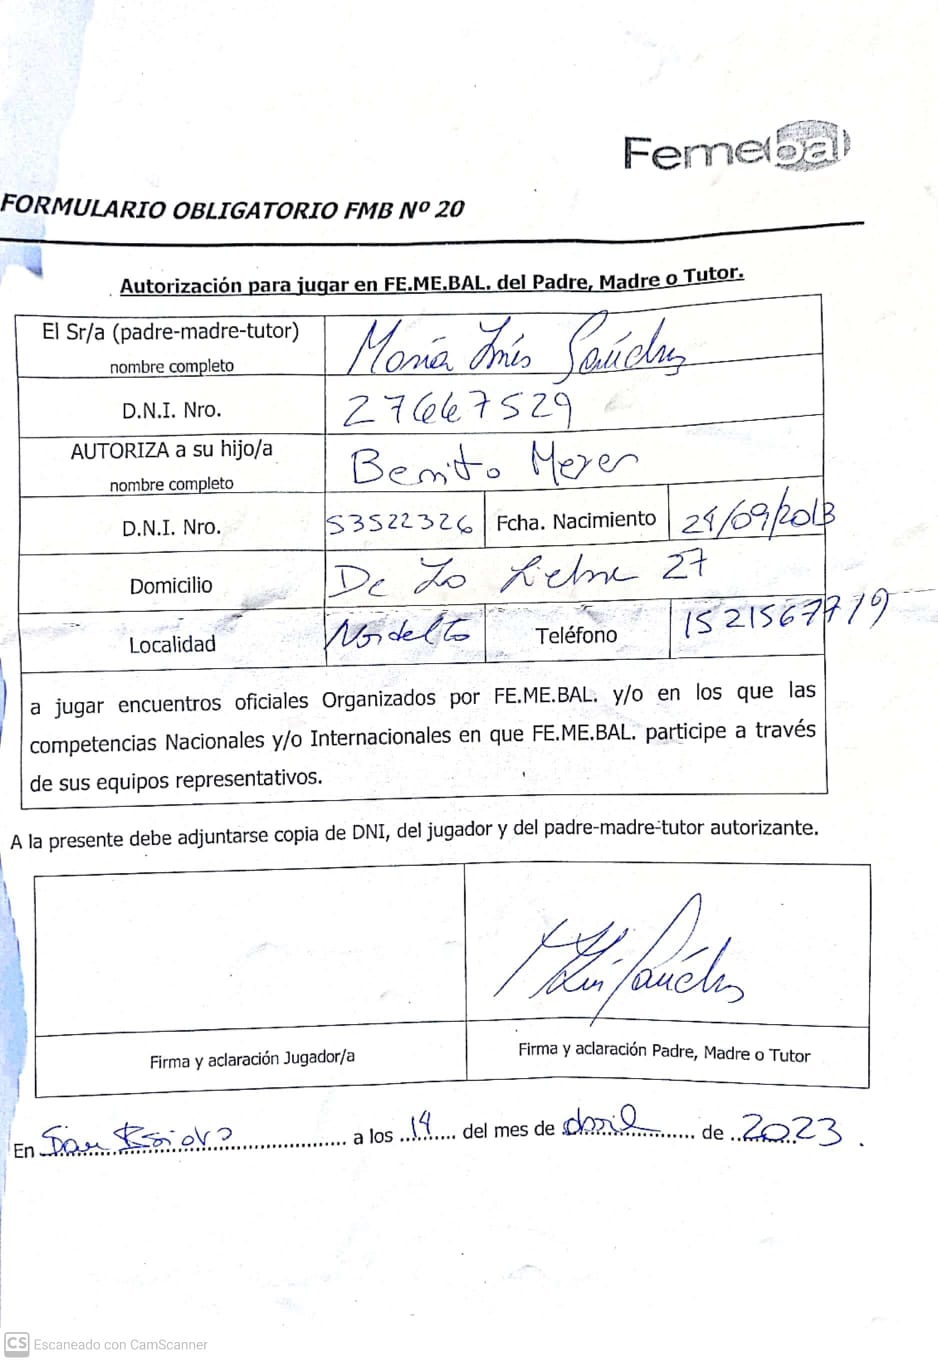 Femebal
FORMULARIO OBLIGATORIO FMB Nº 20
Autorización para jugar en FE.ME.BAL. del Padre, Madre o Tutor.
El Sr/a (padre-madre-tutor)
nombre completo
María Inés Sánchez
D.N.I. Nro.
27667529
AUTORIZA a su hijo/a
nombre completo
Benito Meyer
D.N.I. Nro.
53522326
Fcha. Nacimiento
24/09/2013
Domicilio
De La 27
Localidad
Nordelta
Teléfono
1521567719
a jugar encuentros oficiales Organizados por FE.ME.BAL. y/o en los que las
competencias Nacionales y/o Internacionales en que FE.ME.BAL. participe a través
de sus equipos representativos.
A la presente debe adjuntarse copia de DNI, del jugador y del padre-madre-tutor autorizante.
Firma y aclaración Jugador/a
Firma y aclaración Padre, Madre o Tutor
En San Isidro a los 14 del mes de abril de 2023.
CS Escaneado con CamScanner